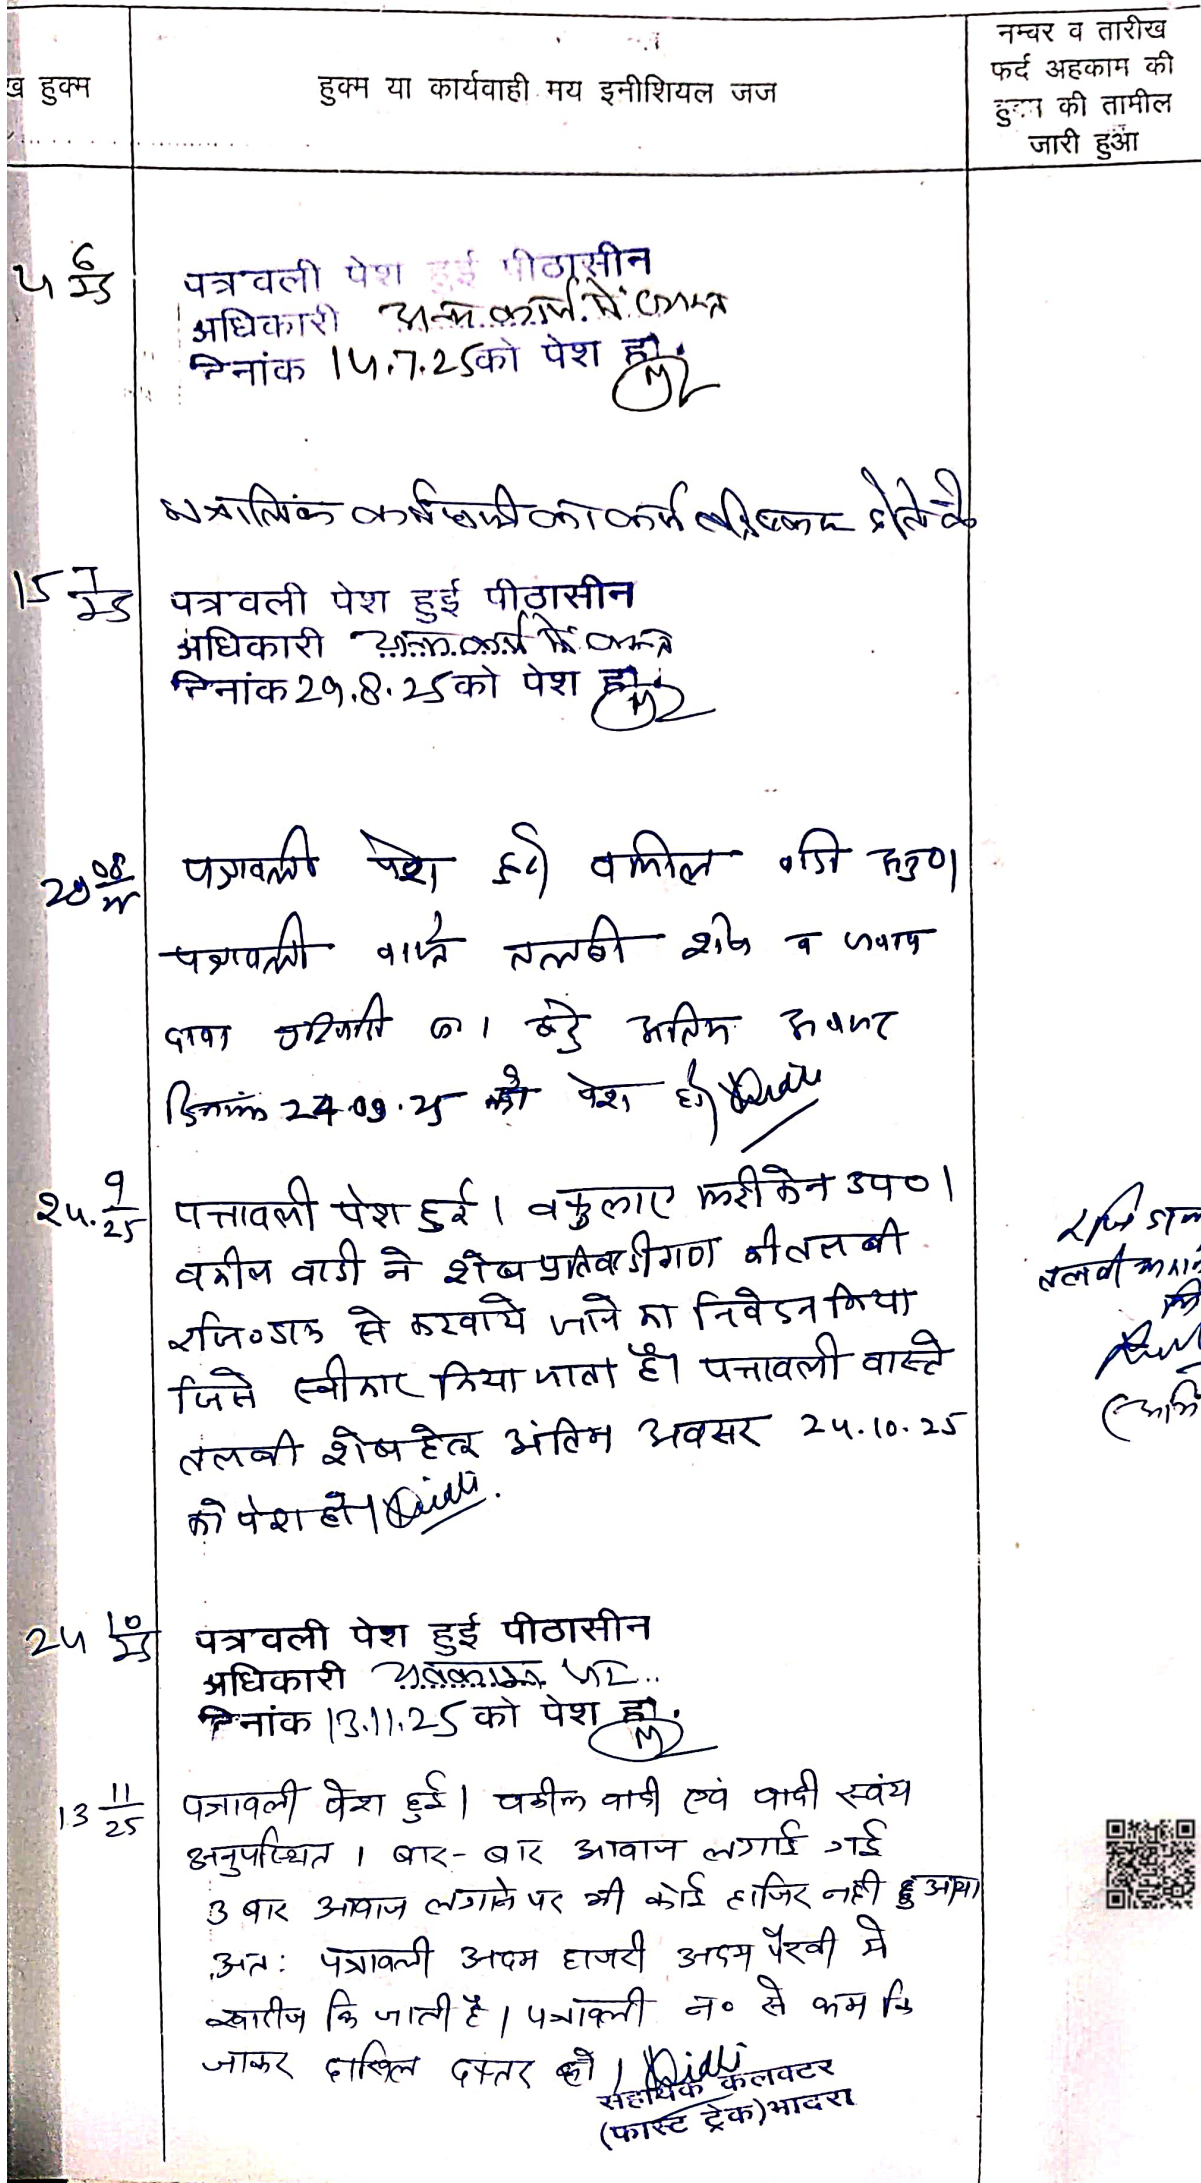 ख हुक्म
हुक्म या कार्यवाही मय इनीशियल जज
नम्बर व तारीख
फर्द अहकाम की
हुक्म की तामील
जारी हुआ
पत्रवली पेश हुई पीठासीन
अधिकारी अन्य कार्य में व्यस्त
दिनांक 14.7.25 को पेश हो.
15 7/25
पत्रवली पेश हुई पीठासीन
अधिकारी अन्य कार्य में व्यस्त
दिनांक 29.8.25 को पेश हो.
पत्रावली पेश हुई वकील वादी
पत्रावली वास्ते तलबी शेष व जवाब
दावा अंतिम अवसर
दिनांक 24.09.25 को पेश हो।
24. 9/25
पत्तावली पेश हुई। वकुलाए फरीकेन उप०।
वकील वादी ने शेष प्रतिवादीगण की तलबी
रजि० डाक से करवाये जाने का निवेदन किया
जिसे स्वीकार किया जाता है। पत्तावली वास्ते
तलबी शेष हेतु अंतिम अवसर 24.10.25
को पेश हो।
24 10/25
पत्रवली पेश हुई पीठासीन
अधिकारी अवकाश पर..
दिनांक 13.11.25 को पेश हो.
13 11/25
पत्रावली पेश हुई। वकील वादी एवं वादी स्वंय
अनुपस्थित। बार-बार आवाज लगाई गई
3 बार आवाज लगाने पर भी कोई हाजिर नही
अत: पत्रावली अदम हाजरी अदम पैरवी मे
खारीज कि जाती है। पत्रावली न० से कम कि
जाकर दाखिल दफ्तर हो।
सहायक कलक्टर
(फास्ट ट्रेक) भादरा